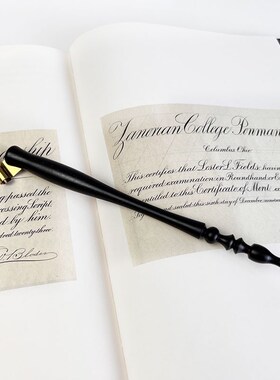 ship
ing passed the
ossing Script
d by him
dred twenty three
Zanerian College Penman
Columbus Ohio
This certifies that Lester L. Fields, havi
required examination in Roundhand or E
entitled to this Certificate of Merit
and sealed this sixth day of December nineteen